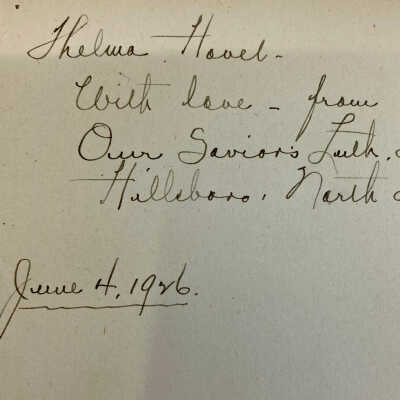 Thelma Hovel-
With love - from
Our Savior's Luth.
Hillsboro, North
June 4, 1926.